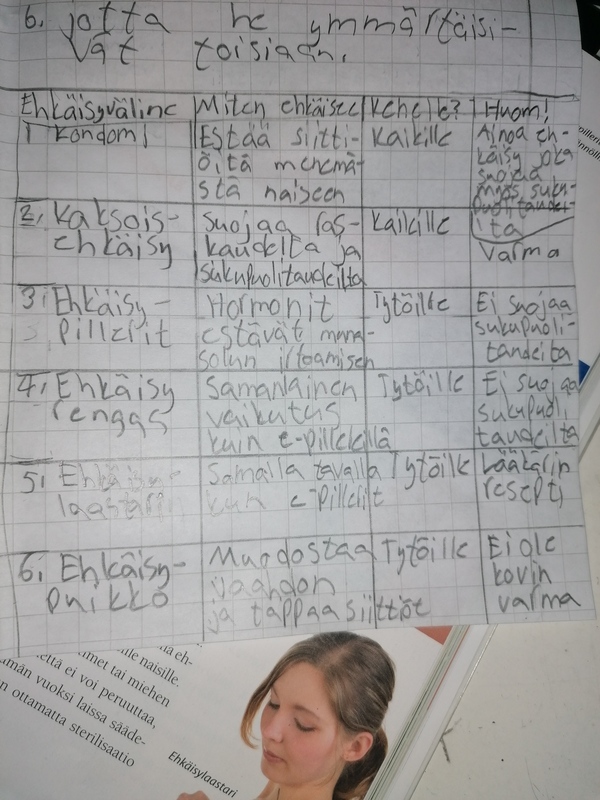 6. jotta he ymmärtäisi-
vät toisiaan.
Ehkäisyväline Miten ehkäisee Kenelle? Huom!
1 Kondomi
Estää siitti-
öitä menemä-
stä naiseen
Kaikille
Ainoa eh-
käisy joka
suojaa
myös suku-
puolitaudei-
ta
2. Kaksois-
ehkäisy
Suojaa ras-
kaudelta ja
sukupuolitaudeilta
Kaikille
Varma
3. Ehkäisy-
pillerit
Hormonit
estävät muna-
solun irtoamisen
Tytöille
Ei suojaa
sukupuoli-
taudeita
4. Ehkäisy
rengas
Samanlainen
vaikutus
kuin e-pillereillä
Tytöille
Ei suojaa
sukupuoli
taudeilta
5. Ehkäisy-
laastari
Samalla tavalla
kun e-pillerit
Tytöille
Lääkärin
resepti
6. Ehkäisy-
puikko
Muodostaa
vaahdon
ja tappaa siittiöt
Tytöille
Ei ole
kovin
varma
ille naisille.
imet tai miehen
että ei voi peruuttaa,
män vuoksi laissa sääde-
n ottamatta sterilisaatio
Ehkäisylaastari